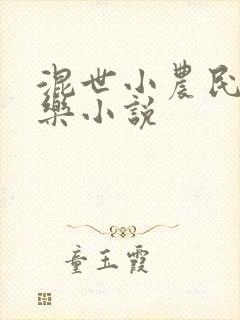 混世小農民
樂小說
童玉霞